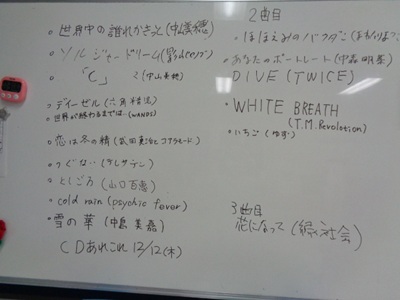 ・世界中の誰れかきっと(中山美穂)
・ソルジャードリーム(影山ヒロノブ)
・「C」 〃(中山美穂)
・ディーゼル(六角精児)
・世界が終わるまでは…(WANDS)
・恋は冬の精(武田真治とコアラモード)
・つぐない(テレサテン)
・としごろ(山口百恵)
・cold rain(psychic fever)
・雪の華(中島美嘉)
CDあれこれ 12/12(木)
2曲目
・ほほえみの
・あなたのポートレート(中森明菜)
DIVE(TWICE)
・WHITE BREATH
(T.M.Revolotion)
・いちご(ゆず)
3曲目
花になって(緑黄社会)